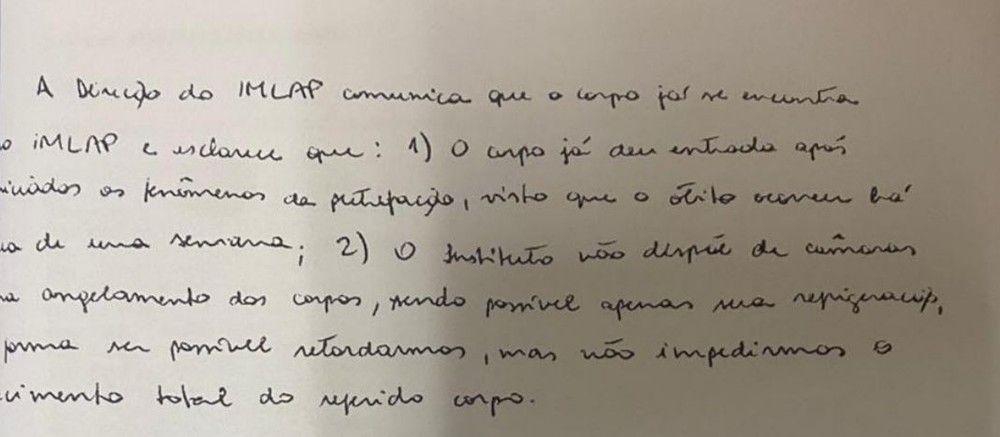 A Direção do IMLAP comunica que o corpo já se encontra
iMLAP e esclarece que: 1) O corpo já deu entrada após
os fenômenos da putrefação, visto que o óbito ocorreu há
de uma semana; 2) O Instituto não dispõe de câmaras
angelamento dos corpos, sendo possível apenas sua refrigeração,
forma ser possível retardarmos, mas não impedirmos o
cimento total do referido corpo.